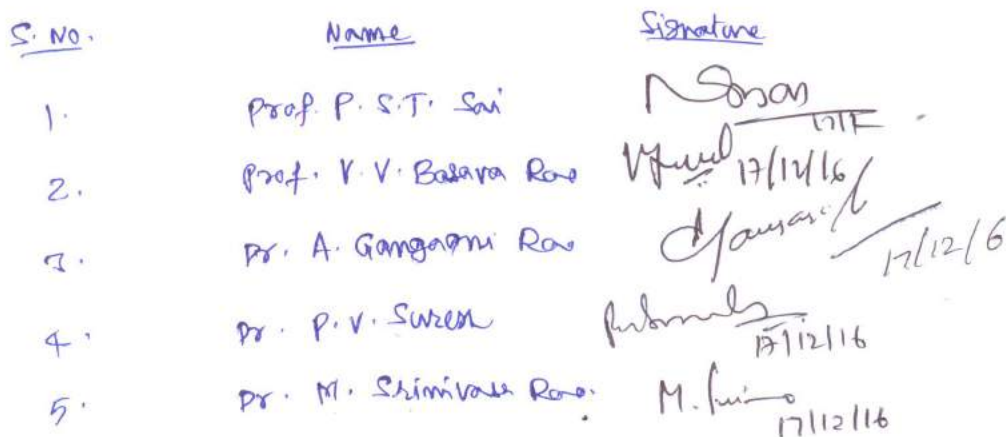 S. No. Name Signature
1. Prof. P. S.T. Sai
2. Prof. V. V. Basava Rao 17/12/16
3. Dr. A. Gangagni Rao 17/12/16
4. Dr. P. V. Suresh 17/12/16
5. Dr. M. Srinivasa Rao. M. 17/12/16